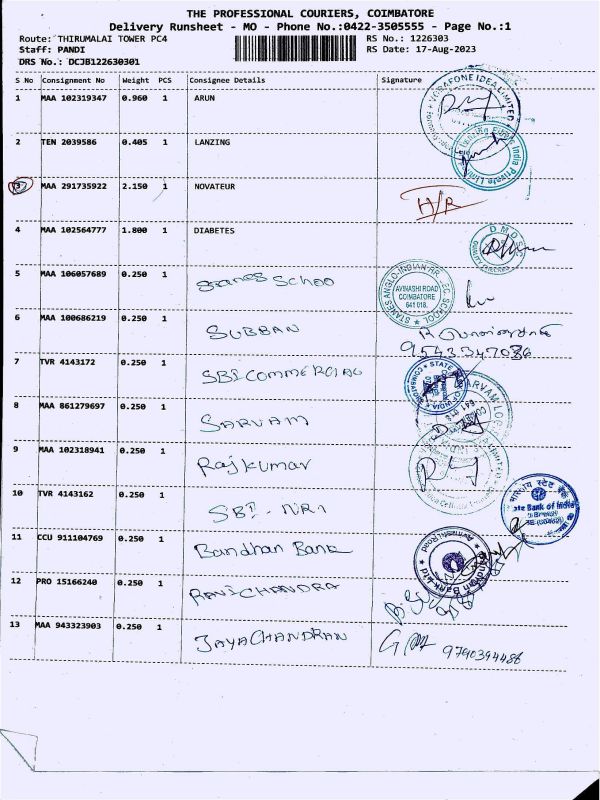 THE PROFESSIONAL COURIERS, COIMBATORE
Delivery Runsheet - MO - Phone No.:0422-3505555 - Page No.:1
Route: THIRUMALAI TOWER PC4 RS No.: 1226303
Staff: PANDI RS Date: 17-Aug-2023
DRS No.: DCJB122630301
S No Consignment No Weight PCS Consignee Details Signature
1 MAA 102319347 0.960 1 ARUN
VODAFONE IDEA LIMITED
2 TEN 2039586 0.405 1 LANZING
India Private Limited
3 MAA 291735922 2.150 1 NOVATEUR H/R
4 MAA 102564777 1.800 1 DIABETES
D.M.D.S.C.
5 MAA 106057689 0.250 1 Stanes School
STANES ANGLO-INDIAN HR. SEC. SCHOOL
AVINASHI ROAD
COIMBATORE
641 018.
6 MAA 100686219 0.250 1 SUBBAN
9543347086
7 TVR 4143172 0.250 1 SBI COMMERCIAL
STATE
COIMBATORE
8 MAA 861279697 0.250 1 SARVAM
SARVAM
9 MAA 102318941 0.250 1 Rajkumar
10 TVR 4143162 0.250 1 SBI - NRI
भारतीय स्टेट बैंक
State Bank of India
11 CCU 911104769 0.250 1 Bandhan Bank
Bandhan Bank Ltd
Avinashi Road
12 PRO 15166240 0.250 1 RAVICHANDRA
13 MAA 943323903 0.250 1 JAYACHANDRAN 9790394486